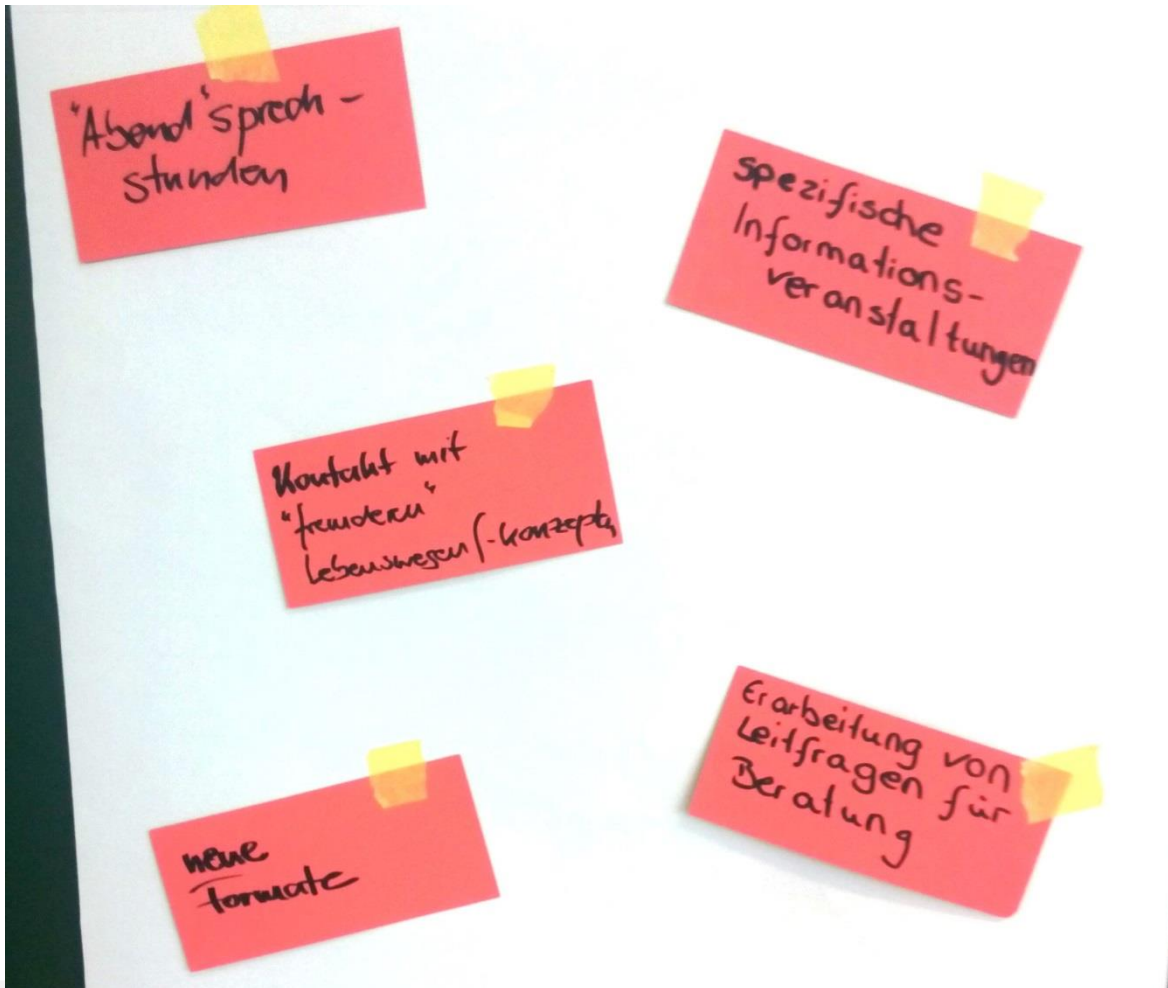 "Abend"sprech-
stunden
spezifische
Informations-
veranstaltungen
Kontakt mit
"fremden"
Lebenswegen/-konzepten
neue
Formate
Erarbeitung von
Leitfragen für
Beratung